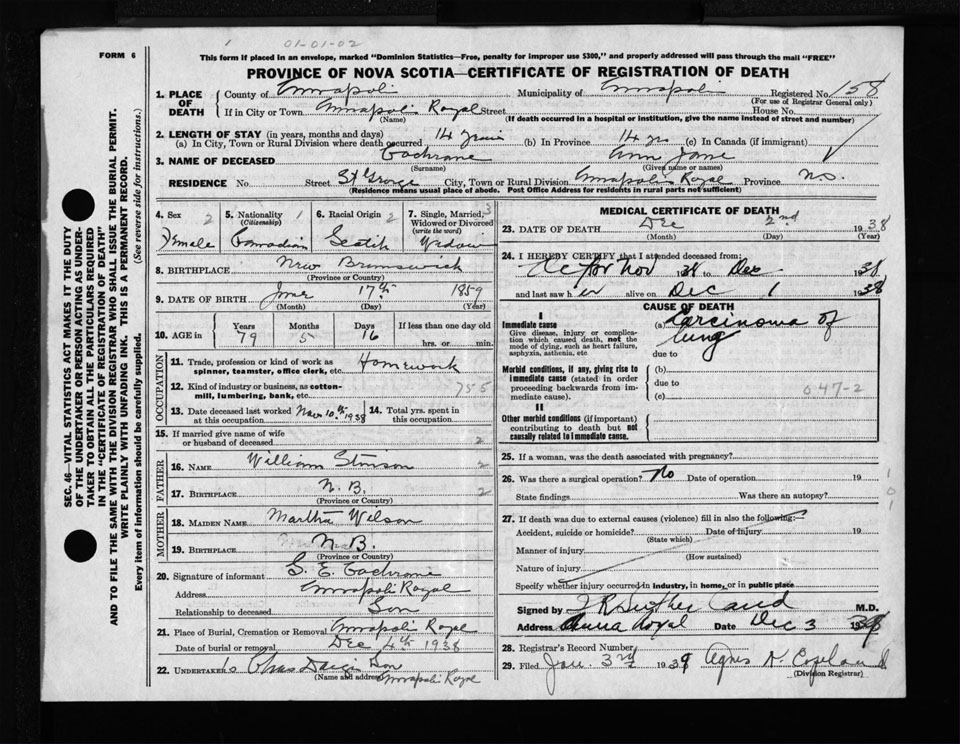 01-01-02
FORM 6
This form if placed in an envelope, marked "Dominion Statistics—Free, penalty for improper use $300," and properly addressed will pass through the mail "FREE"
PROVINCE OF NOVA SCOTIA—CERTIFICATE OF REGISTRATION OF DEATH
SEC. 46—VITAL STATISTICS ACT MAKES IT THE DUTY
OF THE UNDERTAKER OR PERSON ACTING AS UNDER-
TAKER TO OBTAIN ALL THE PARTICULARS REQUIRED
IN THE "CERTIFICATE OF REGISTRATION OF DEATH"
AND TO FILE THE SAME WITH THE DIVISION REGISTRAR WHO SHALL ISSUE THE BURIAL PERMIT.
WRITE PLAINLY WITH UNFADING INK. THIS IS A PERMANENT RECORD.
Every item of information should be carefully supplied. (See reverse side for instructions.)
1. PLACE OF DEATH County of Annapolis Municipality of Annapolis Registered No. 158
(For use of Registrar General only)
If in City or Town Annapolis Royal Street House No.
(Name) (If death occurred in a hospital or institution, give the name instead of street and number)
2. LENGTH OF STAY (in years, months and days)
(a) In City, Town or Rural Division where death occurred 14 years (b) In Province 14 yrs (c) In Canada (if immigrant)
3. NAME OF DECEASED Cochrane Ann Jane
(Surname) (Given name or names)
RESIDENCE No. Street St George City, Town or Rural Division Annapolis Royal Province N.S.
(Residence means usual place of abode. Post Office Address for residents in rural parts not sufficient)
4. Sex 2 5. Nationality 1 (Citizenship) 6. Racial Origin 2 7. Single, Married, Widowed or Divorced (write the word) 3
Female Canadian Scotch Widow
8. BIRTHPLACE New Brunswick
(Province or Country)
9. DATE OF BIRTH June 17th 1859
(Month) (Day) (Year)
10. AGE in Years 79 Months 5 Days 16 If less than one day old hrs. or min.
OCCUPATION
11. Trade, profession or kind of work as spinner, teamster, office clerk, etc. Homework
12. Kind of industry or business, as cotton-mill, lumbering, bank, etc. 755
13. Date deceased last worked at this occupation Nov. 10th 1938 14. Total yrs. spent in this occupation
15. If married give name of wife or husband of deceased 2
FATHER
16. NAME William Stinson 2
17. BIRTHPLACE N.B. 2
(Province or Country)
MOTHER
18. MAIDEN NAME Martha Wilson
19. BIRTHPLACE N.B.
(Province or Country)
20. Signature of informant S. E. Cochrane
Address Annapolis Royal
Relationship to deceased Son
21. Place of Burial, Cremation or Removal Annapolis Royal
Date of burial or removal Dec 4th 1938
22. UNDERTAKER Son
(Name and address) Annapolis Royal
MEDICAL CERTIFICATE OF DEATH
23. DATE OF DEATH Dec 2nd 1938
(Month) (Day) (Year)
24. I HEREBY CERTIFY that I attended deceased from:
Nov 1938 to Dec 1938
and last saw her alive on Dec 1 1938
CAUSE OF DEATH
I
Immediate cause
Give disease, injury or complication which caused death, not the mode of dying, such as heart failure, asphyxia, asthenia, etc
(a) Carcinoma of
lung
due to
Morbid conditions, if any, giving rise to immediate cause (stated in order proceeding backwards from immediate cause).
(b)
due to
(c) 047-2
II
Other morbid conditions (if important) contributing to death but not causally related to immediate cause.
25. If a woman, was the death associated with pregnancy?
26. Was there a surgical operation? No Date of operation 19
State findings Was there an autopsy?
27. If death was due to external causes (violence) fill in also the following:—
Accident, suicide or homicide? Date of injury 19
(State which)
Manner of injury
(How sustained)
Nature of injury
Specify whether injury occurred in industry, in home, or in public place
Signed by M.D.
Address Anna Royal Date Dec 3 1938
28. Registrar's Record Number
29. Filed Jan. 3rd 1939 Agnes N. Copeland
(Division Registrar)